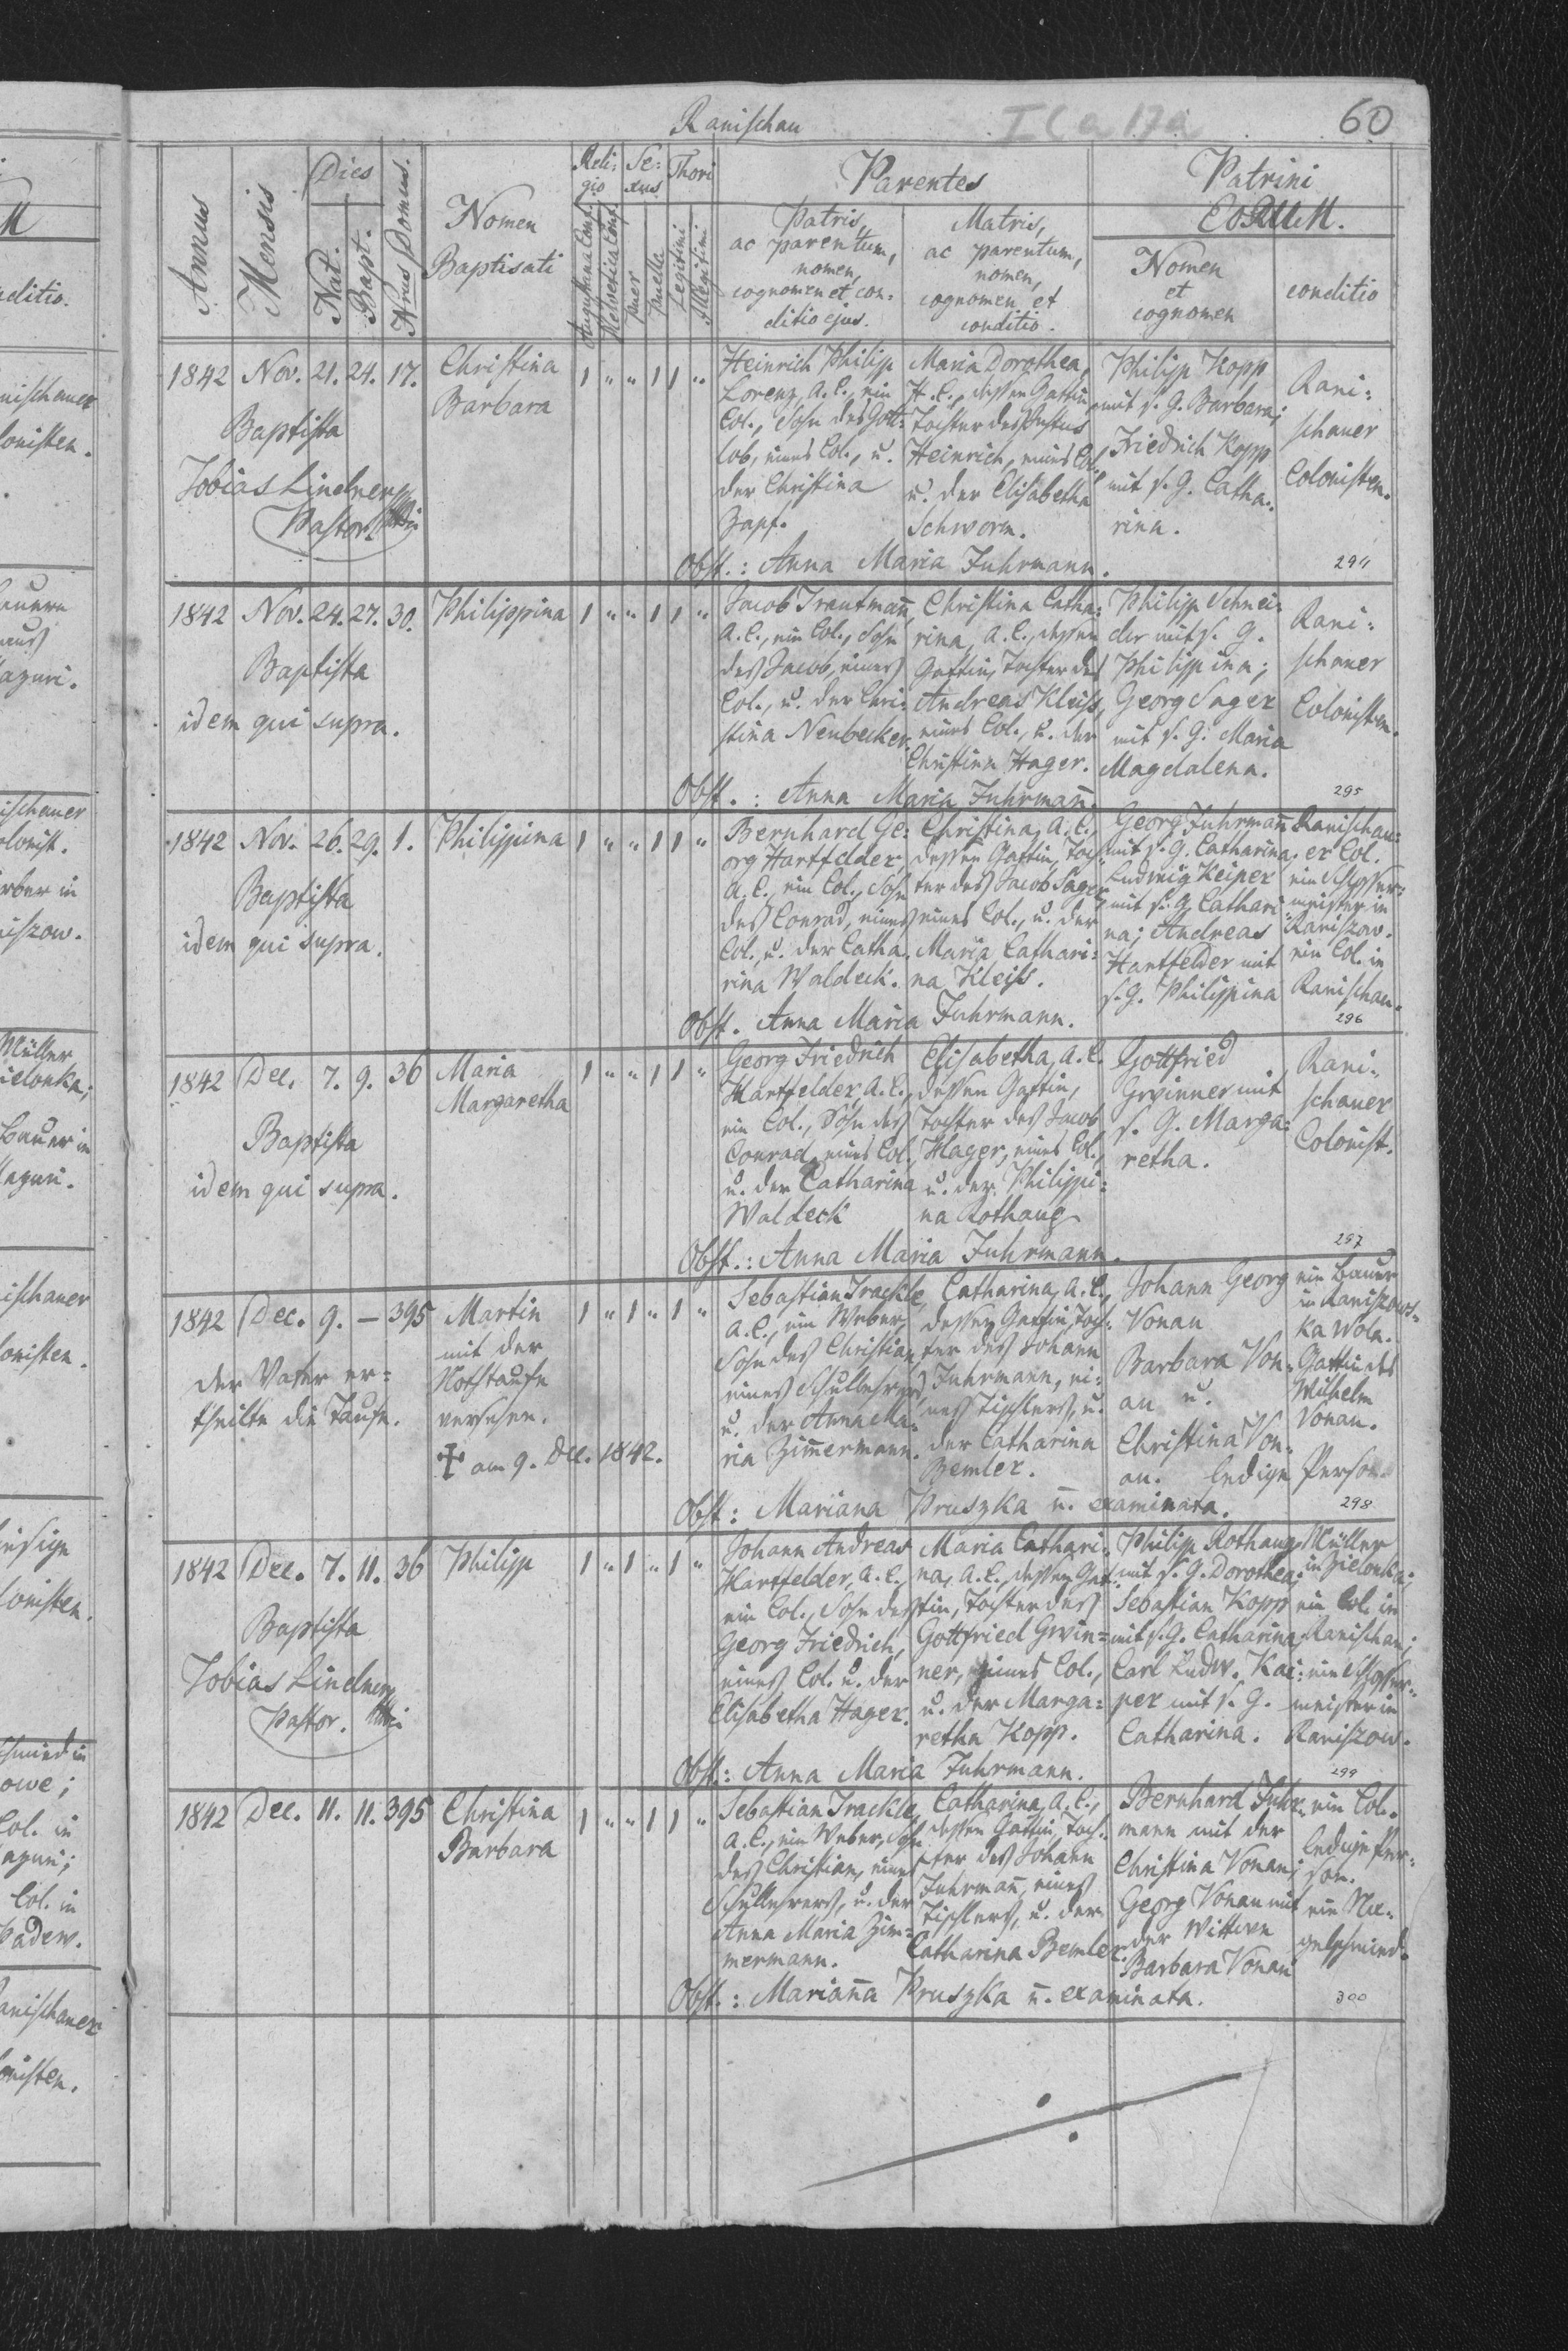 Ranischau
I C a 17a
60
Annus
Mensis
Dies
Nat.
Bapt.
Nrus Domus.
Nomen
Baptisati
Reli-
gio
Augustana Conf.
Helvetica Conf.
Se-
xus
puer
puella
Thori
Legitimi
Illegitimi
Parentes
Patris,
ac parentum,
nomen,
cognomen et con-
ditio ejus.
Matris,
ac parentum,
nomen,
cognomen et
conditio.
Patrini
EORUM.
Nomen
et
cognomen
conditio
1842 Nov. 21. 24. 17.
Baptista
Tobias Lindner
Pastor.
Christina
Barbara
1 " " 1 1 "
Heinrich Philipp
Lorenz, A. C., ein
Col., Sohn des Gott-
lob, eines Col., u.
der Christina
Zapf.
Maria Dorothea,
H. C., dessen Gattin
Tochter des Justus
Heinrich, eines Col.
u. der Elisabetha
Schworm.
Philipp Kopp
mit s. G. Barbara;
Friedrich Kopp
mit s. G. Catha-
rina.
Rani-
schauer
Colonisten.
Obst.: Anna Maria Fuhrmann.
294
1842 Nov. 24. 27. 30.
Baptista
idem qui supra.
Philippina
1 " " 1 1 "
Jacob Trautmañ,
A. C., ein Col., Sohn
des Jacob, eines
Col., u. der Chri-
stina Neubecker.
Christina Catha-
rina, A. C., dessen
Gattin, Tochter des
Andreas Kleiss,
eines Col., u. der
Christina Hager.
Philipp Schnei-
der mit s. G.
Philippina;
Georg Sager
mit s. G. Maria
Magdalena.
Rani-
schauer
Colonisten.
Obst.: Anna Maria Fuhrmañ.
295
1842 Nov. 26. 29. 1.
Baptista
idem qui supra.
Philippina
1 " " 1 1 "
Bernhard Ge-
org Hartfelder,
A. C., ein Col., Sohn
des Conrad, eines
Col., u. der Catha-
rina Waldeck.
Christina, A. C.,
dessen Gattin, Toch-
ter des Jacob Sager,
eines Col., u. der
Maria Cathari-
na Kleiss.
Georg Fuhrmañ
mit s. G. Catharina.
Ludwig Keiper
mit s. G. Cathari-
na; Andreas
Hartfelder mit
s. G. Philippina
Ranischau-
er Col.
ein Schlosser-
meister in
Raniszow.
ein Col. in
Ranischau.
Obst. Anna Maria Fuhrmann.
296
1842 Dec. 7. 9. 36
Baptista
idem qui supra.
Maria
Margaretha
1 " " 1 1 "
Georg Friedrich
Hartfelder, A. C.,
ein Col., Sohn des
Conrad, eines Col.,
u. der Catharina
Waldeck
Elisabetha, A. C.
dessen Gattin,
Tochter des Jacob
Hager, eines Col.,
u. der Philippi-
na Rothaug
Gottfried
Grwinner mit
s. G. Marga-
retha.
Rani-
schauer
Colonist.
Obst.: Anna Maria Fuhrmann.
297
1842 Dec. 9. — 395
der Vater er-
theilte die Taufe.
Martin
mit der
Nothtaufe
versehen.
✝ am 9. Dec. 1842.
1 " 1 " 1 "
Sebastian Trackle,
A. C., ein Weber,
Sohn des Christian,
eines Schullehrers,
u. der Anna Ma-
ria Zim̄ermann.
Catharina, A. C.,
dessen Gattin, Toch-
ter des Johann
Fuhrmann, ei-
nes Tischlers, u.
der Catharina
Bemler.
Johann Georg
Vonau
Barbara Von-
au u.
Christina Von-
au. ledige Person
ein Bauer
in Raniszows-
ka Wola.
Gattin des
Wilhelm
Vonau.
Obst: Mariana Pruszka ū. examinata.
298
1842 Dec. 7. 11. 36
Baptista
Tobias Lindner
Pastor.
Philipp
1 " 1 " 1 "
Johann Andreas
Hartfelder, A. C.,
ein Col., Sohn des
Georg Friedrich,
eines Col. u. der
Elisabetha Hager.
Maria Cathari-
na, A. C., dessen Gat-
tin, Tochter des
Gottfried Grwin-
ner, eines Col.,
u. der Marga-
retha Kopp.
Philipp Rothaug
mit s. G. Dorothea;
Sebastian Kopp
mit s. G. Catharina;
Carl Ludw. Kai-
per mit s. G.
Catharina.
Müller
in Zielonka;
ein Col. in
Ranischau;
ein Schlosser-
meister in
Raniszow.
Obst.: Anna Maria Fuhrmann.
299
1842 Dec. 11. 11. 395
Christina
Barbara
1 " " 1 1 "
Sebastian Trackle,
A. C., ein Weber, Sohn
des Christian, eines
Schullehrers, u. der
Anna Maria Zim-
mermann.
Catharina, A. C.,
dessen Gattin, Toch-
ter des Johann
Fuhrmañ, eines
Tischlers, u. der
Catharina Bemler.
Bernhard Fuhr-
mann mit der
Christina Vonau;
Georg Vonau mit
der Wittwe
Barbara Vonau
ein Col.
ledige Per-
son.
ein Na-
gelschmied.
Obst.: Mariaña Pruszka ū. examinata.
300